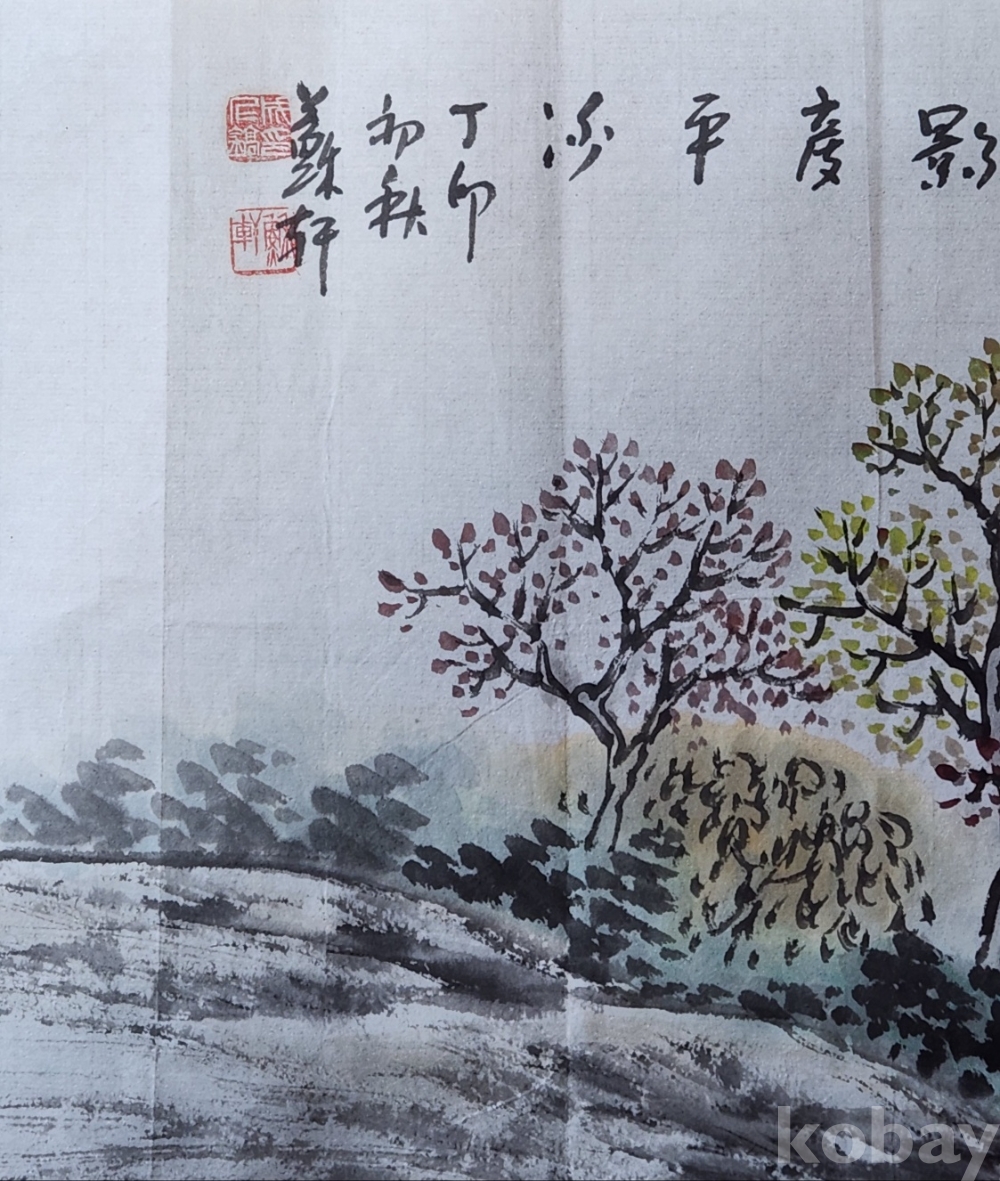 影度平沙
丁卯
初秋
蘇軒
kobay